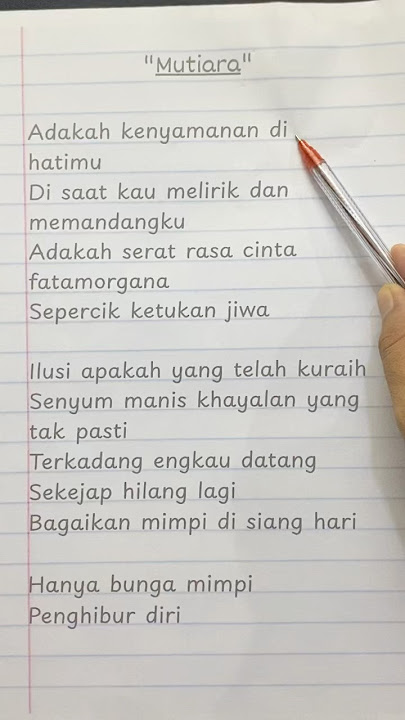 "Mutiara"
Adakah kenyamanan di
hatimu
Di saat kau melirik dan
memandangku
Adakah serat rasa cinta
fatamorgana
Sepercik ketukan jiwa
Ilusi apakah yang telah kuraih
Senyum manis khayalan yang
tak pasti
Terkadang engkau datang
Sekejap hilang lagi
Bagaikan mimpi di siang hari
Hanya bunga mimpi
Penghibur diri